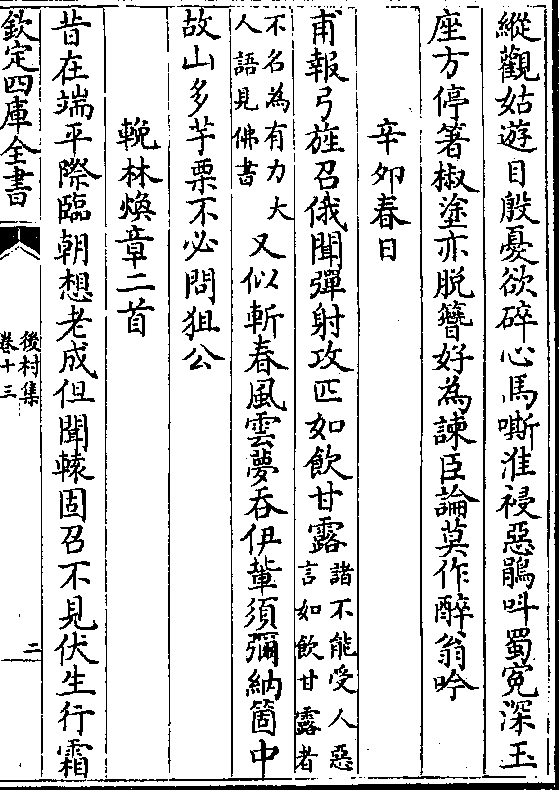 縱觀姑遊目殷憂欲碎心馬嘶淮祲惡鵑呌蜀寃深玉
座方停箸椒塗亦脱簮好為諫臣論莫作醉翁吟
辛夘春日
甫報弓旌召俄聞彈射攻匹如飲甘露諸不能受人惡
言如飲甘露者
不名為有力大
人語見佛書又似斬春風雲夢吞伊軰須彌納箇中
故山多芋栗不必問狙公
輓林煥章二首
昔在端平際臨朝想老成但聞轅固召不見伏生行霜
欽定四庫全書
後村集
卷十三
二